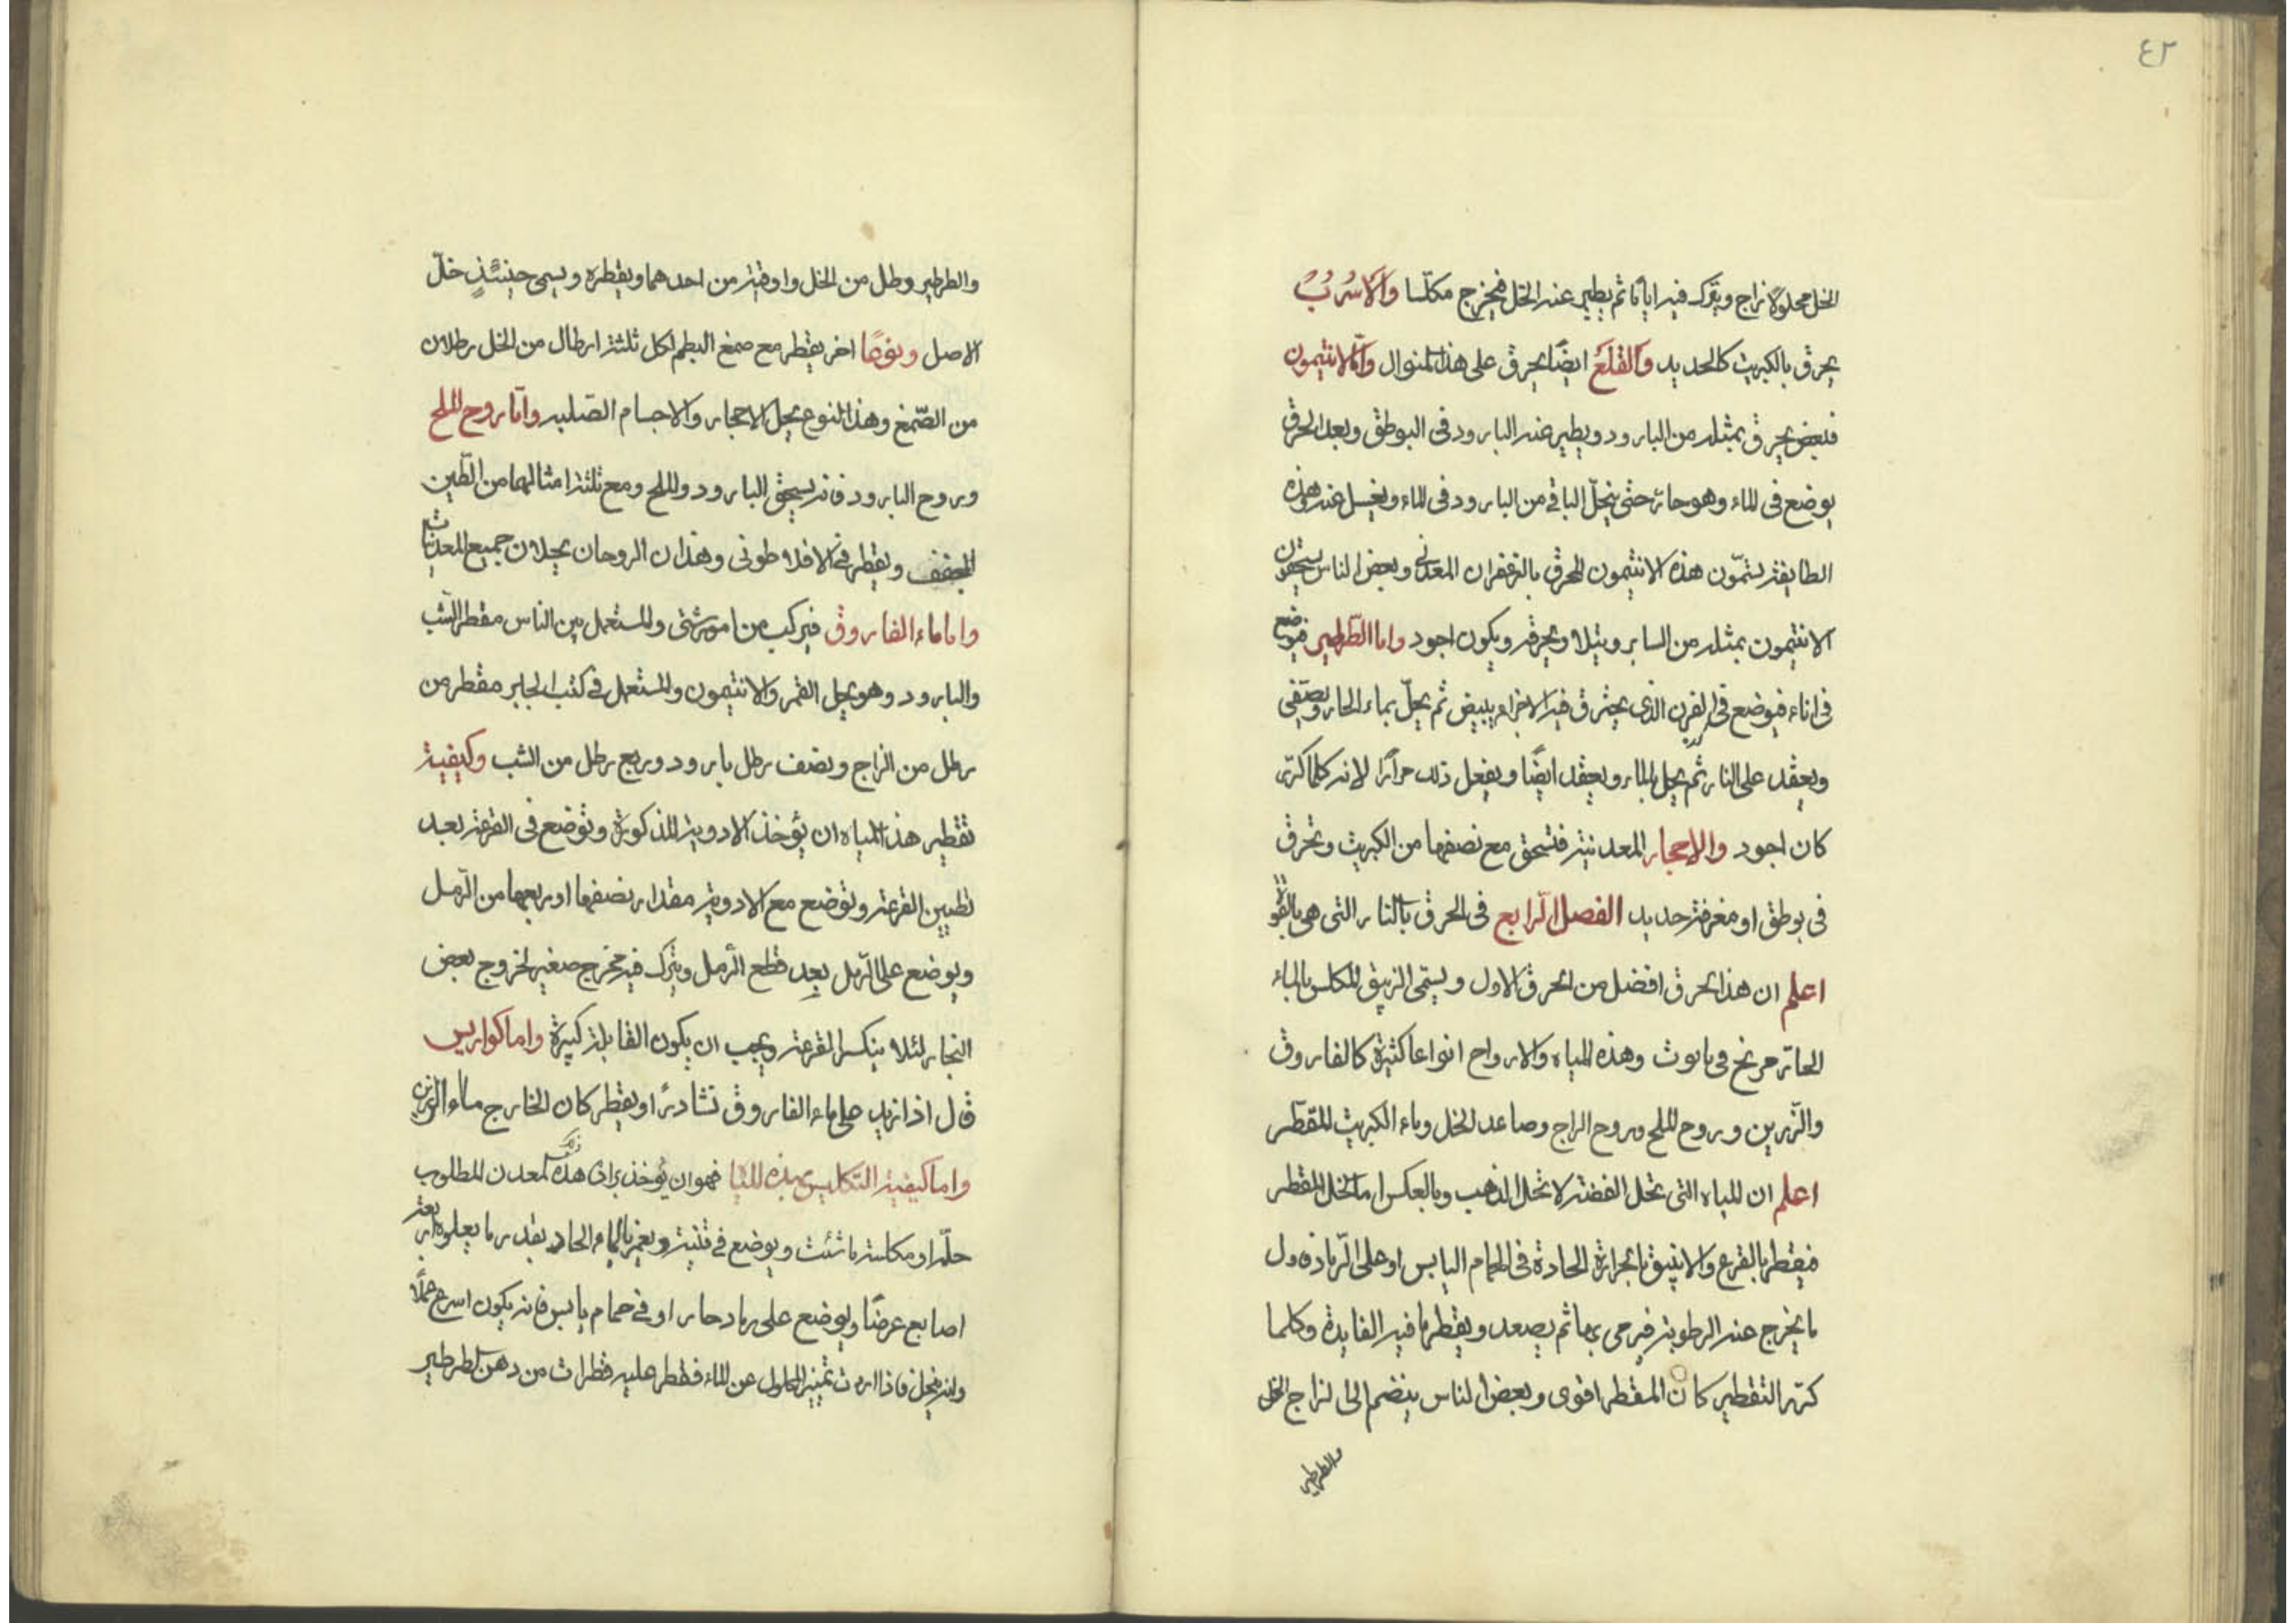 ٤٢
الخل محلولا زاج ويترك فيه اياما ثم يطير عنه الخل فيخرج مكلسا والاسرب
يحرق بالكبريت كالحديد والقلع ايضا يحرق على هذا المنوال واما الانتيمون
فبعض يحرق بمثله من البارود ويطير عنه البارود في البوطق وبعد الحرق
يوضع في الماء وهو حار حتى ينحل الباقي من البارود في الماء ويغسل عنه وهذه
الطايفة يسمون هذه الانتيمون المحرق بالزعفران المعدني وبعض الناس يسحقون
الانتيمون بمثله من السابر ويحرقه ويكون اجود واما الطرطير فيوضع
في اناء فيوضع في الفرن الذي يحترق فيه ليبيض ثم يحل بماء الحار ويصفى
ويعقد على النار ثم يحل بالماء ويعقد ايضا ويفعل ذلك مرارا لانه كلما كرر
كان اجود والاحجار المعدنية فتسحق مع نصفها من الكبريت وتحرق
في بوطق او مغرفة حديد الفصل الرابع في الحرق بالنار التي هي بالقوة
اعلم ان هذا الحرق افضل من الحرق الاول ويسمى الزيبق المكلس بالماء
الحار وهذه المياه والارواح انواعا كثيرة كالفاروق
والزرين وروح الملح وروح الزاج وصاعد الخل وماء الكبريت المقطر
اعلم ان المياه التي تحل الفضة لا تحل الذهب وبالعكس اما الخل المقطر
فيقطر بالقرع والانبيق بالحرارة الحادة في الحمام اليابس او على الرماد فاول
ما يخرج عنه الرطوبة فيرمى بها ثم يصعد ويقطر ما فيه الفايدة وكلما
كرر التقطير كان المقطر اقوى وبعض الناس ينضم الى لزاج الخل
والطرطير
والطرطير رطل من الخل واوقية من احدهما ويقطره ويسمى حينئذ خل
الاصل ونوعا اخر يقطر مع صمغ البطم لكل ثلثة ارطال من الخل رطلان
من الصمغ وهذا النوع يحل الاحجار والاجسام الصلبه واما روح الملح
وروح البارود فانه يسحق البارود والملح ومع ثلثة امثالهما من الطين
المجفف ويقطر في الافلاطوني وهذان الروحان يحلان جميع المعدنيات
واما ماء الفاروق فيركب من امور شتى والمستعمل بين الناس مقطر الشب
والبارود وهو يحل القمر والانتيمون والمستعمل في كتب الجابر مقطر من
رطل من الزاج ونصف رطل بارود وربع رطل من الشب وكيفية
تقطير هذا المياه ان يؤخذ الادوية المذكورة وتوضع في القرعة بعد
تطيين القرعة وتوضع مع الادوية مقدار نصفها او ربعها من الرمل
ويوضع على الرمل بعد قطع الرمل ويترك فيه مخرج صغير لخروج بعض
البخار لئلا ينكسر القرعة ويجب ان يكون القابلة كبيرة واما كواريس
قال اذا زيد على ماء الفاروق نشادرا ويقطر كان الخارج ماء الزرين
واما كيفية التكليس بهذه المياه فهو ان يؤخذ برادة هذه المعدن المطلوب
حله او مكلسه ما شئت ويوضع في قنينة ويغمر بالماء الحاد بقدر ما يعلوه اربعة
اصابع عرضا ويوضع على رماد حار او في حمام يابس فانه يكون اسرع عملا
وانه ينحل فاذا اردت تمييز المحلول عن الماء فقطر عليه قطرات من دهن الطرطير